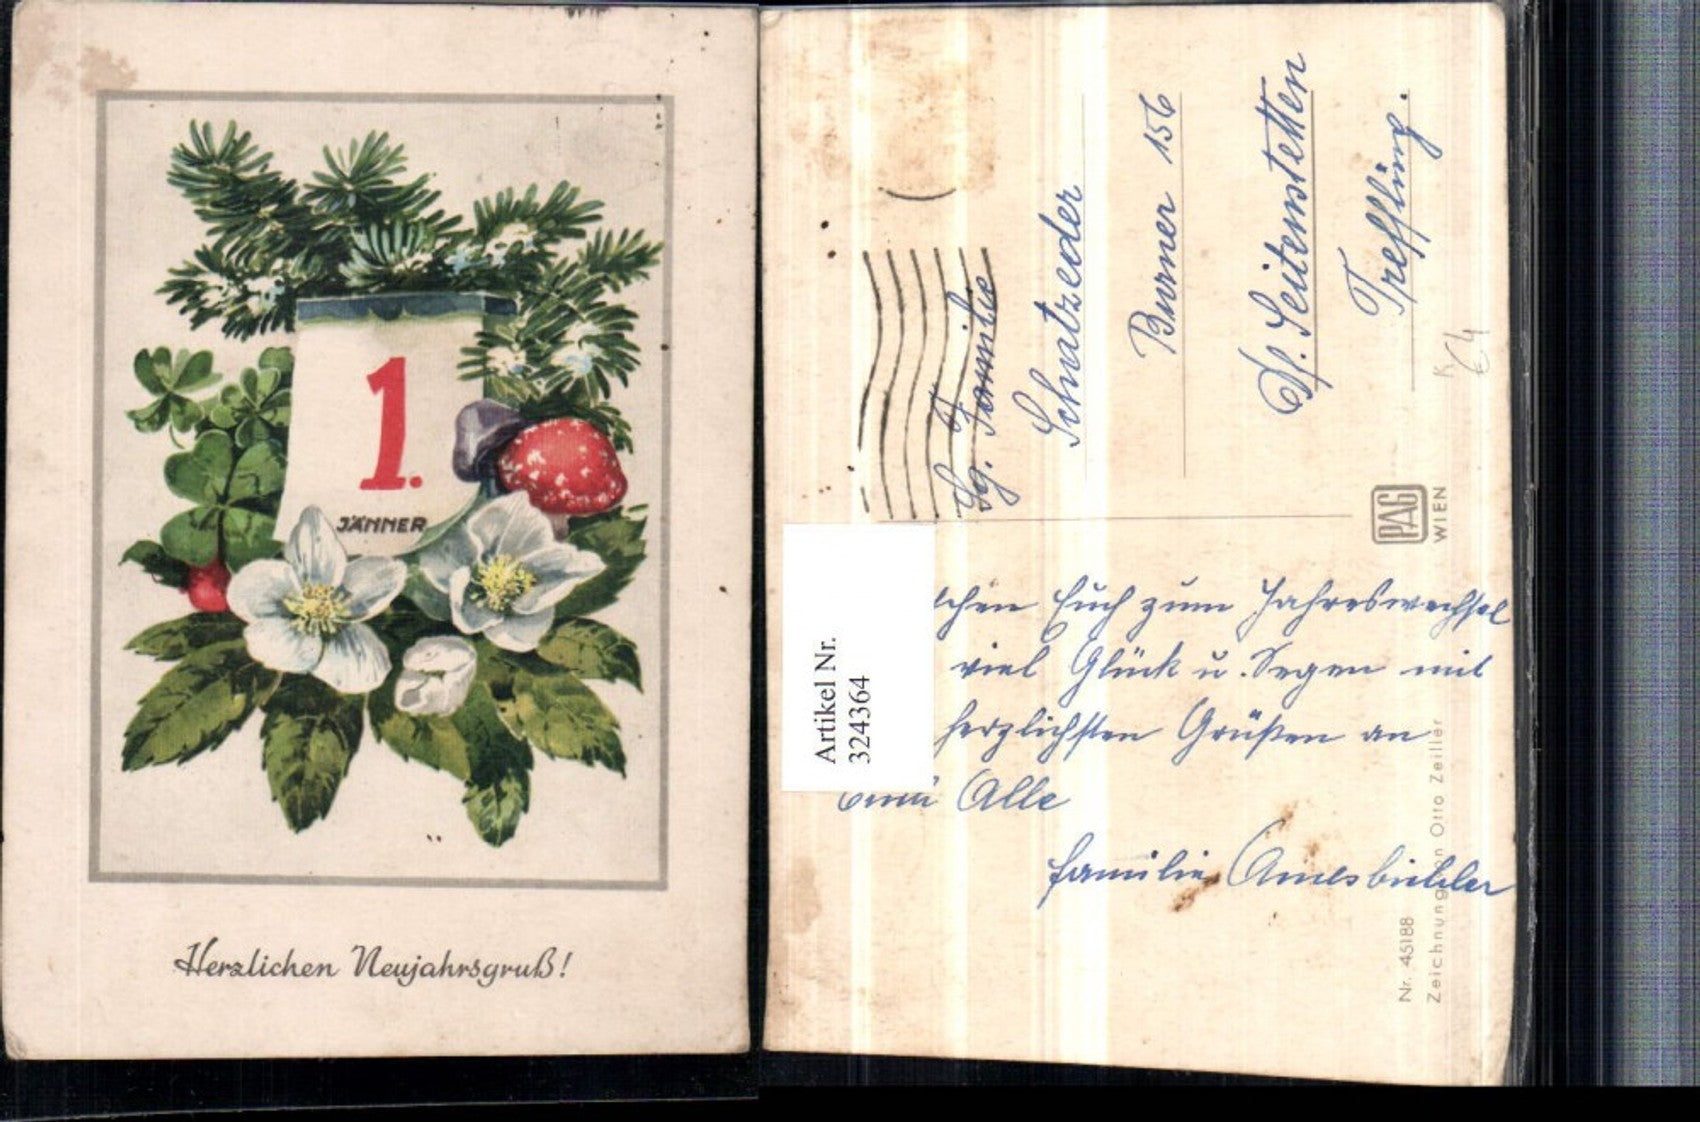 1.
JÄNNER
Herzlichen Neujahrsgruß!
Sg. Familie
Schatzeder
Burner 156
St. Seitenstetten
Treffling.
K
€4
PAG
WIEN
Artikel Nr.
324364
schen Euch zum Jahreswechsel
viel Glück u. Segen mit
herzlichsten Grüßen an
Alle
Familie Amesbichler
Nr. 45188
Zeichnung von Otto Zeiller